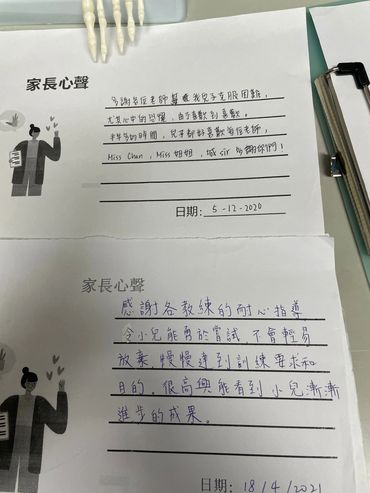 家長心聲
多謝各位老師幫助我兒子克服困難,
尤其心中的恐懼,由不喜歡到喜歡。
半年多的時間,兒子都好喜歡每位老師,
Miss Chan, Miss 姐姐, 城 sir 多謝你們!
日期: 5-12-2020
家長心聲
感謝各教練的耐心指導
令小兒能勇於嘗試 不會輕易
放棄, 慢慢達到訓練要求和
目的。很高興能看到小兒漸漸
進步的成果。
日期: 18/4/2021